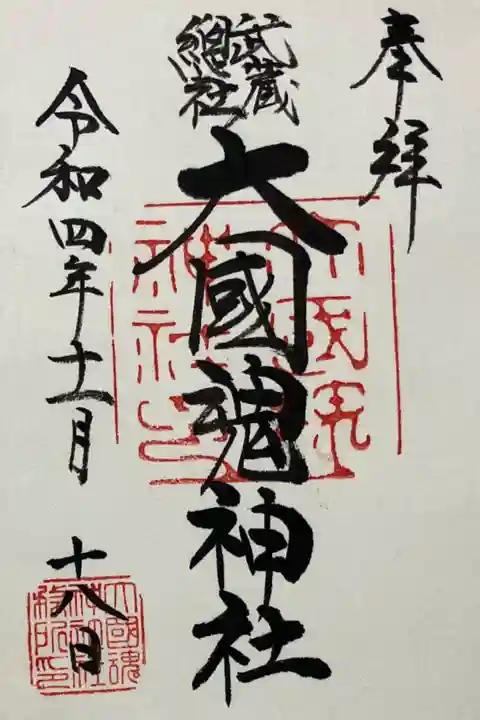 奉拝
武蔵
総社
大國魂神社
令和四年十一月
十八日
大國魂
神社